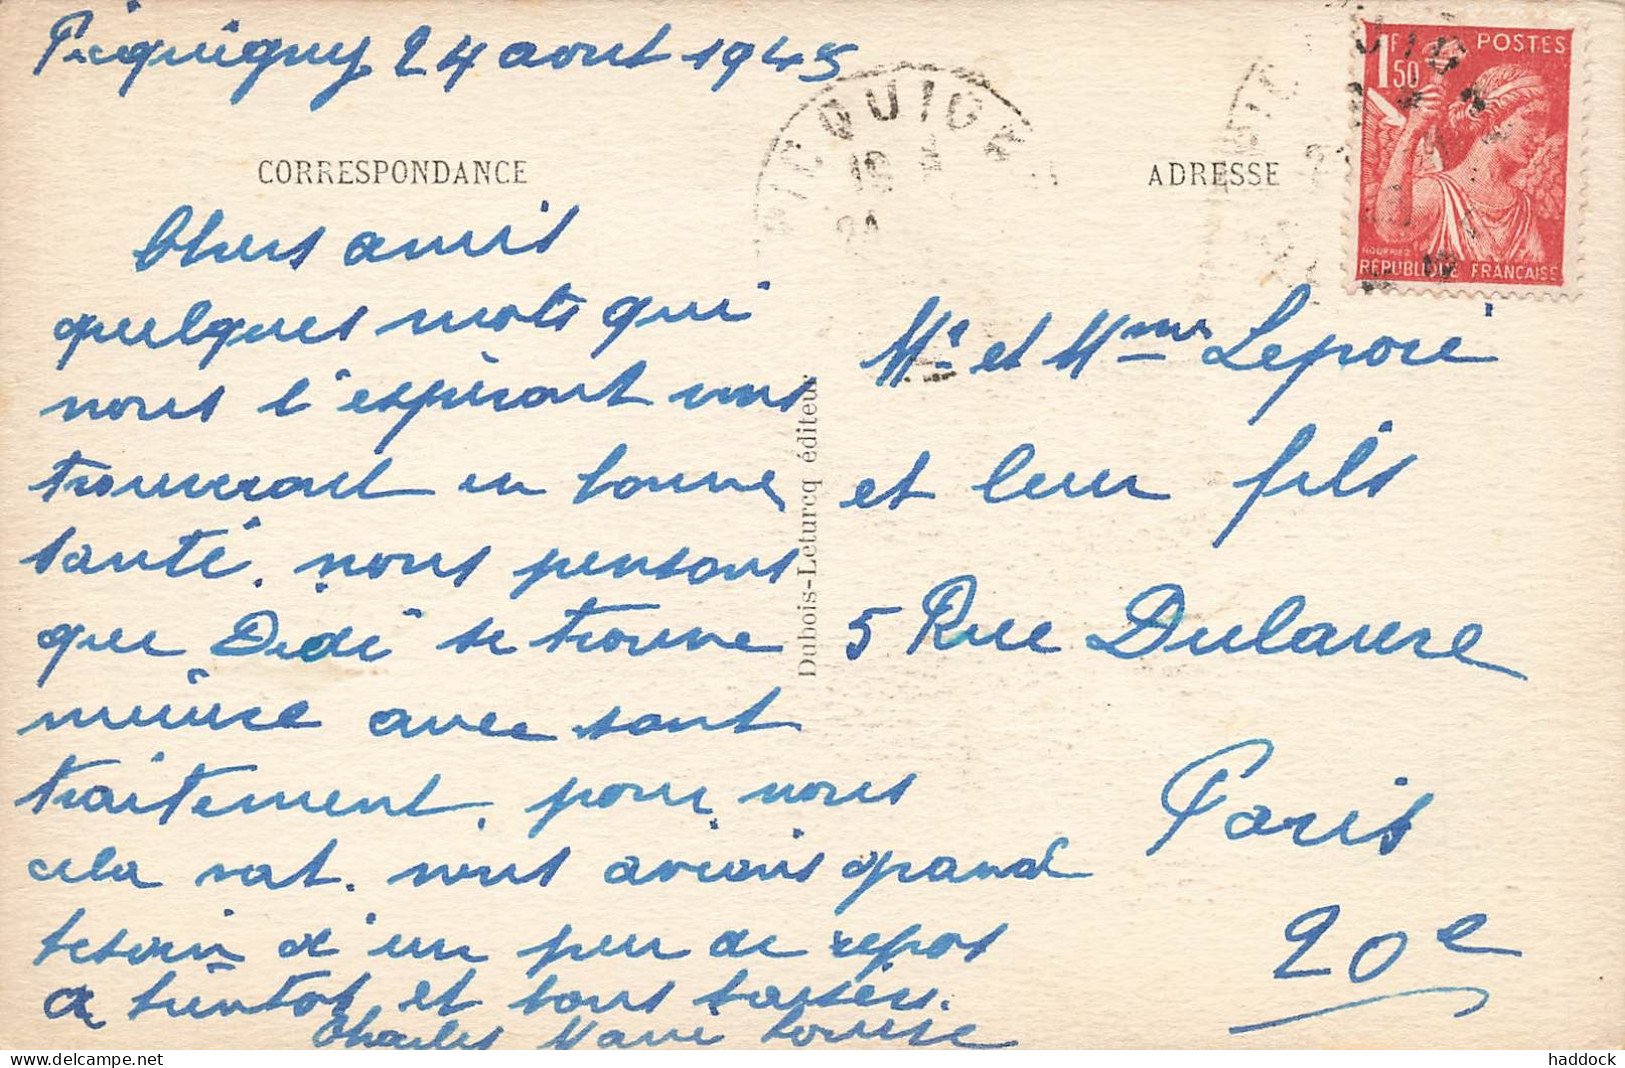 Picquigny 24 aout 1945
PICQUIGN
CORRESPONDANCE
ADRESSE
1F50 POSTES
HOURRIEZ
RÉPUBLIQUE FRANÇAISE
Chers amis
quelques mots qui
nous l'espéront vous
trouveront en bonne
santé. nous pensons
que Dédé se trouve
mieux avec sont
traitement. pour nous
cela vat. nous avions grand
besoin d'un peu de repos
a bientot et bons baisers.
Charles Marie Louise
Dubois-Leturcq éditeur
Mr et Mme Leporé
et leur fils
5 Rue Dulaure
Paris
20e
haddock